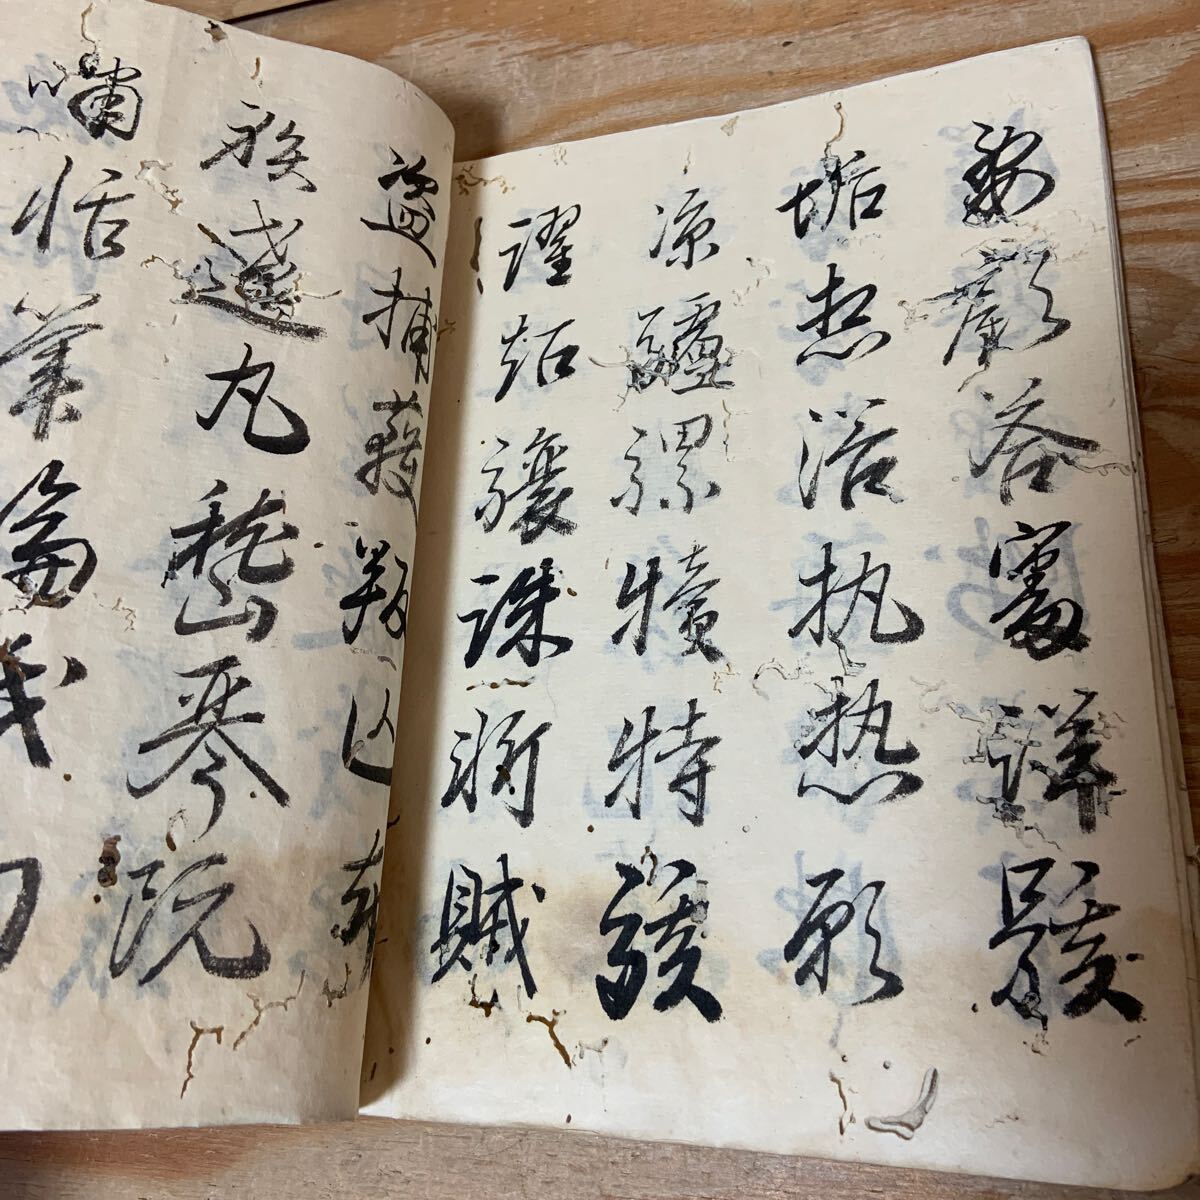 要顧答審詳骸
垢想浴執熱願
涼驢騾犢特駭
躍超驤誅斬賊
盜捕獲叛亡布
射遼丸嵇琴阮
嘯恬筆倫紙